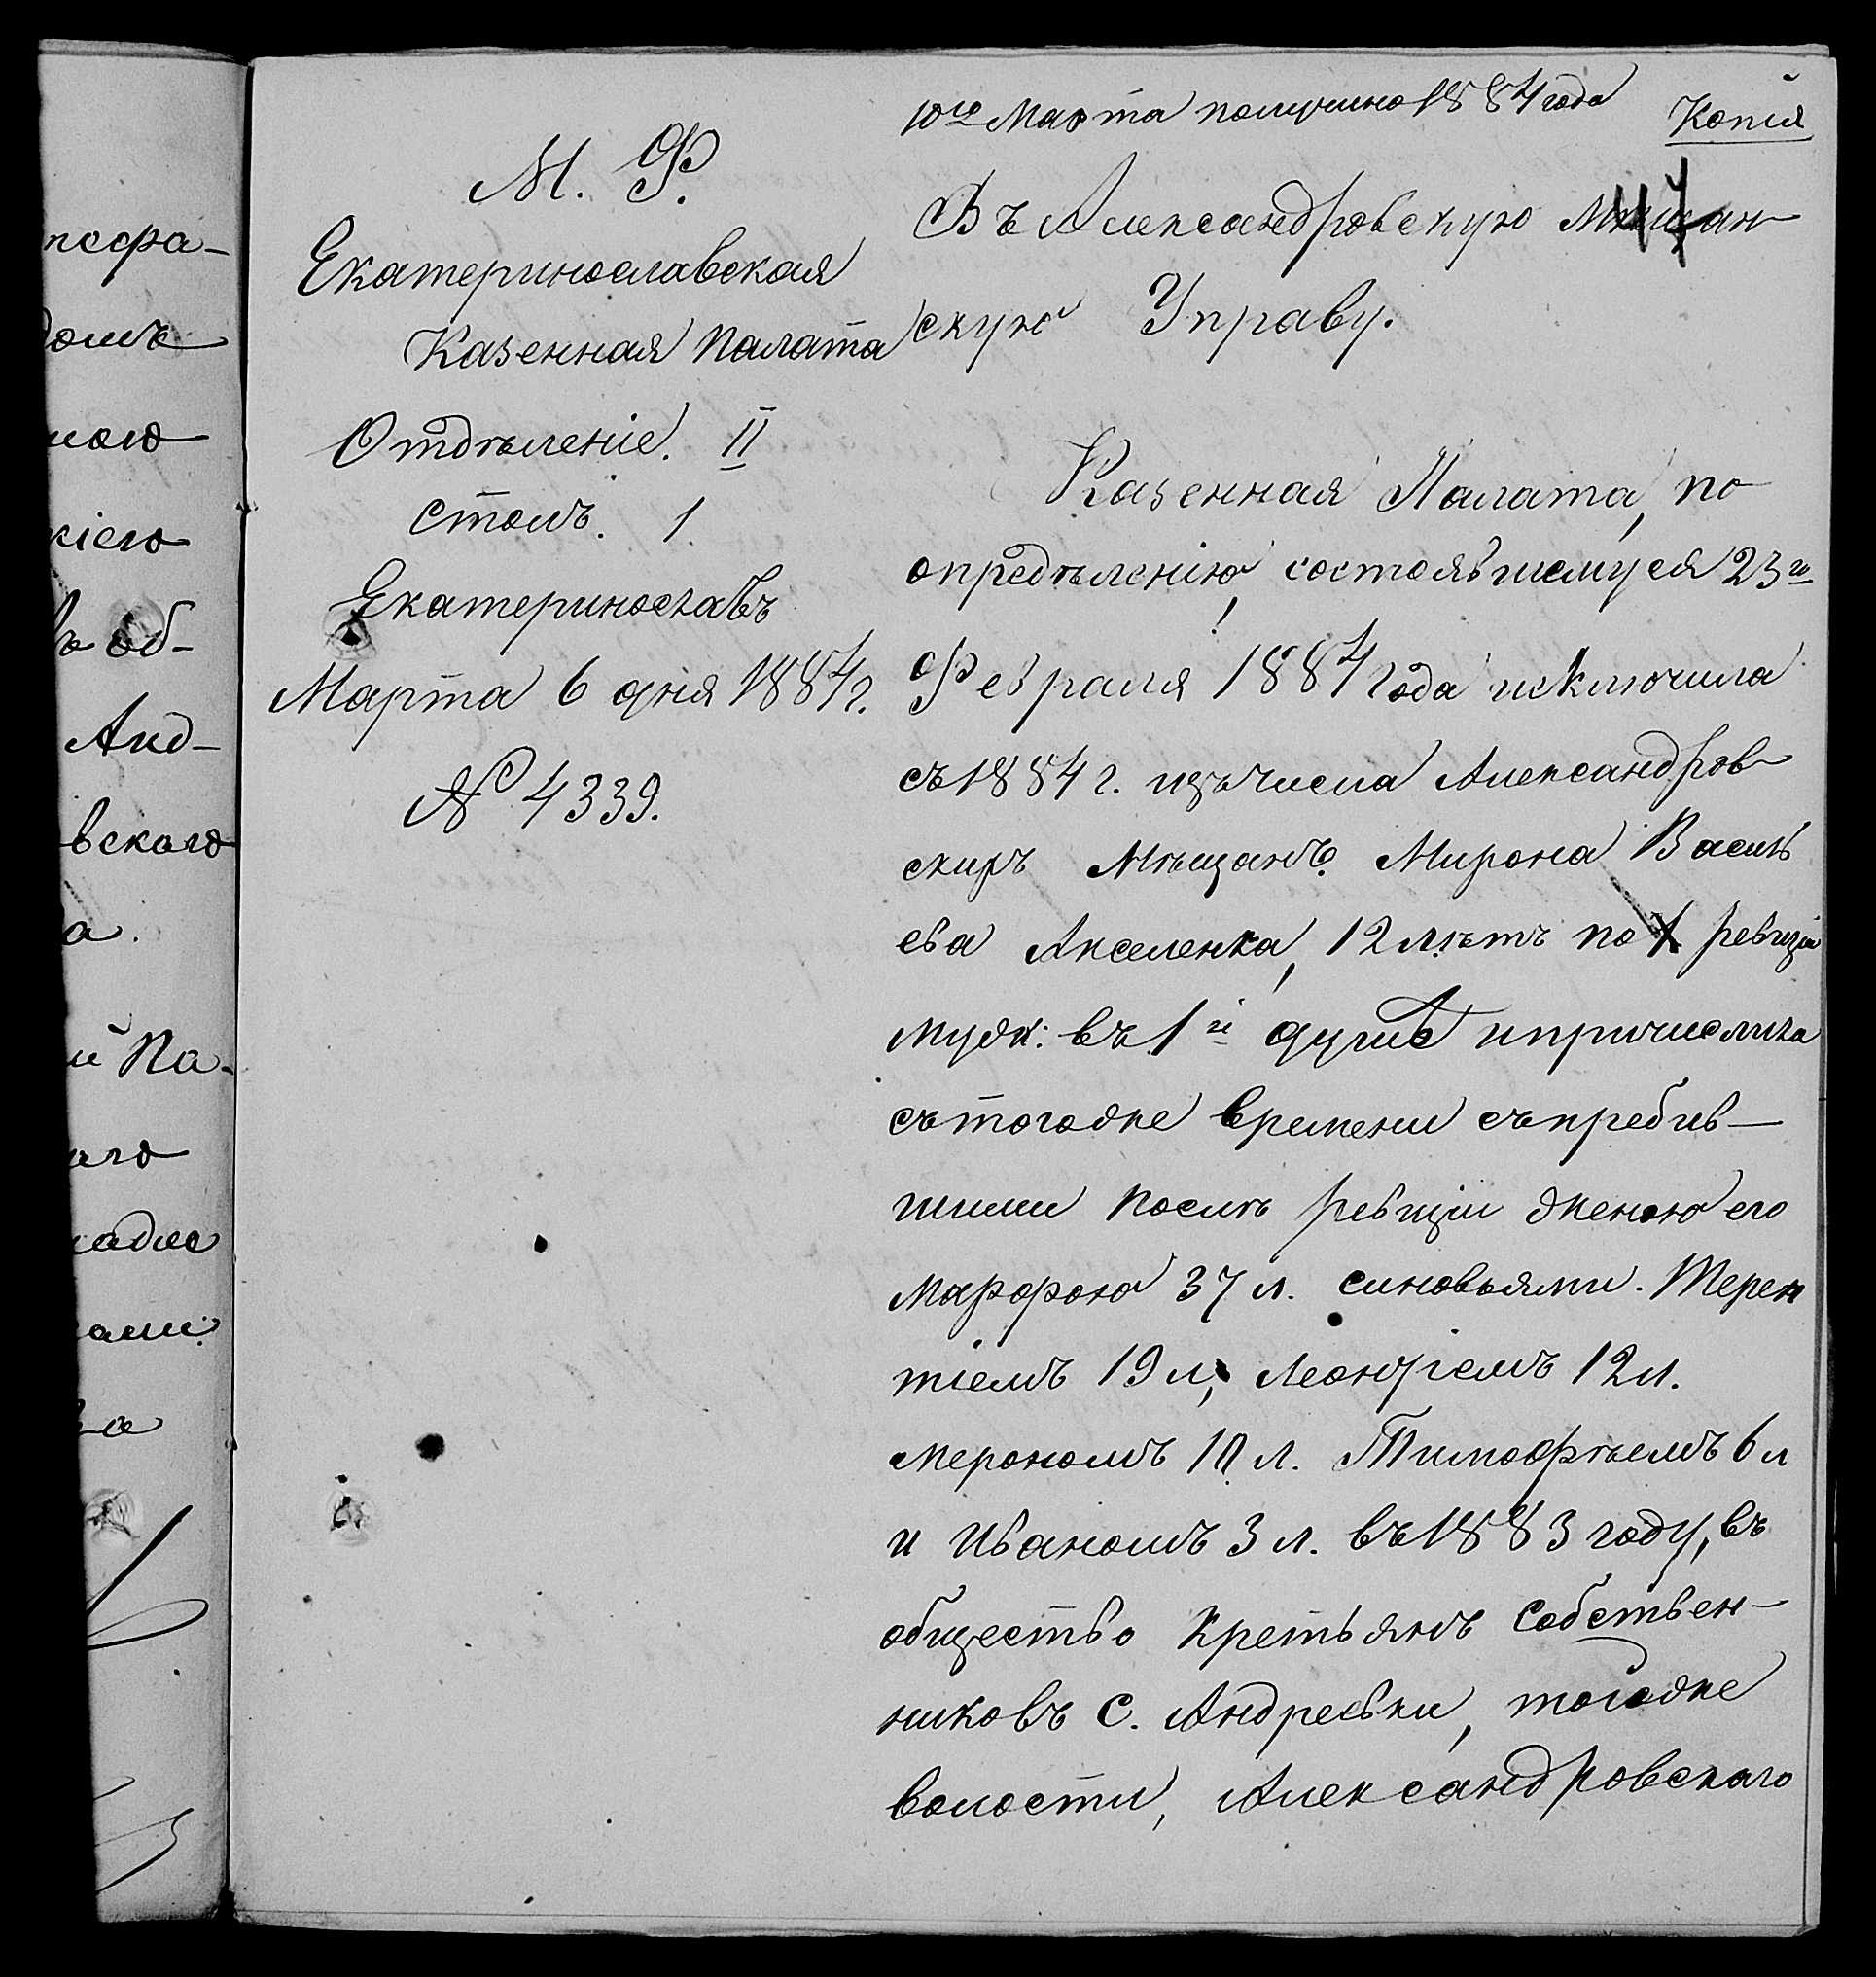 посра-
домъ
ною
кіею
въ об-
Анд-
вскаго
а.
й Па-
аго
ами
10го Марта получено 1884 года
Копія
М. Ф.
Екатеринославская
Казенная Палата
Отдѣленіе. II
Столъ. 1.
Екатеринославъ
Марта 6 дня 1884 г.
№ 4339.
117
Въ Александровскую Мѣщан
скую Управу.
Казенная Палата, по
опредѣленію, состоявшемуся 23го
Февраля 1884 года исключила
съ 1884 г. изъ числа Александров
скихъ Мѣщанъ. Мирона Василь
ева Акселенка, 12 лѣтъ по X ревизіи
муж: въ 1й душѣ и причислила
съ тогоже времени съ прибыв-
шими послѣ ревизіи женою его
Марфою 37 л. сыновьями. Терен
тіемъ 19 л, Леонтіемъ 12 л.
Мерономъ 10 л. Тимофѣемъ 6 л
и Иваномъ 3 л. въ 1883 году, въ
общество кретьянъ собствен-
никовъ С. Андреевки, тогоже
волости, Александровскаго